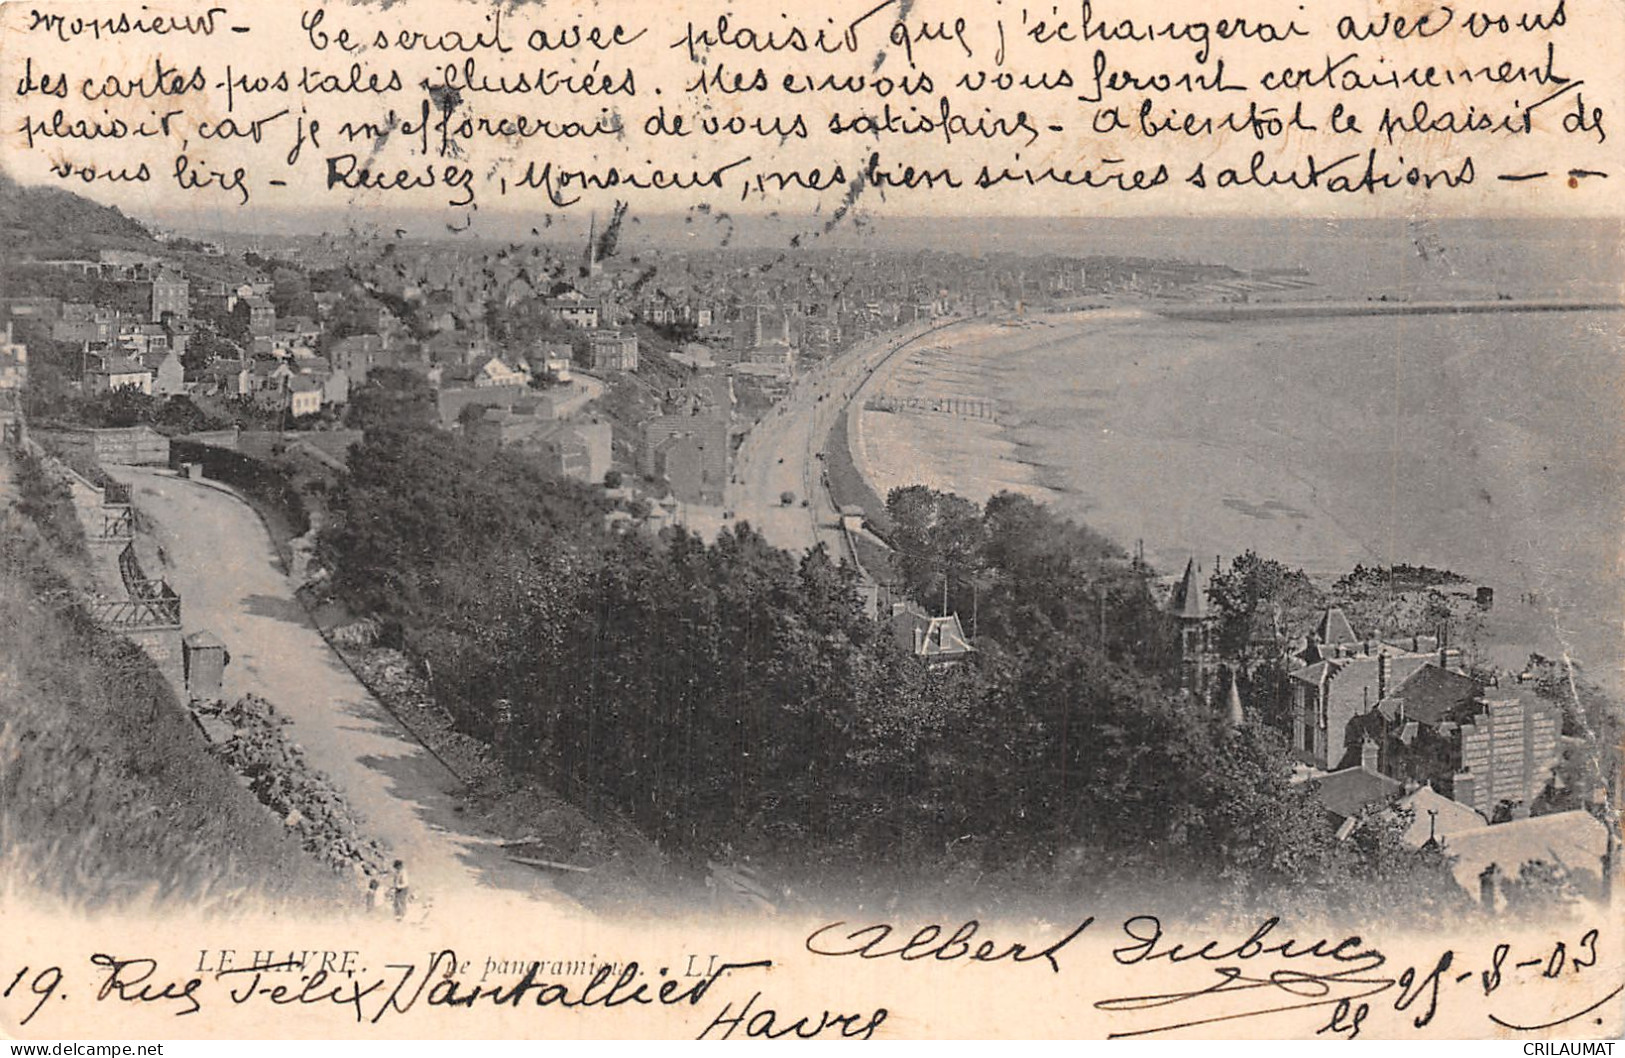 Monsieur - Ce serait avec plaisir que j'échangerai avec vous
des cartes-postales illustrées. Mes envois vous feront certainement
plaisir, car je m'efforcerai de vous satisfaire - A bientôt le plaisir de
vous lire - Recevez, Monsieur, mes bien sincères salutations - -
LE HAVRE. Vue panoramique. LL.
Albert Dubuc
19. Rue Félix Vantallier
Havre
le 25-8-03.
CRILAUMAT